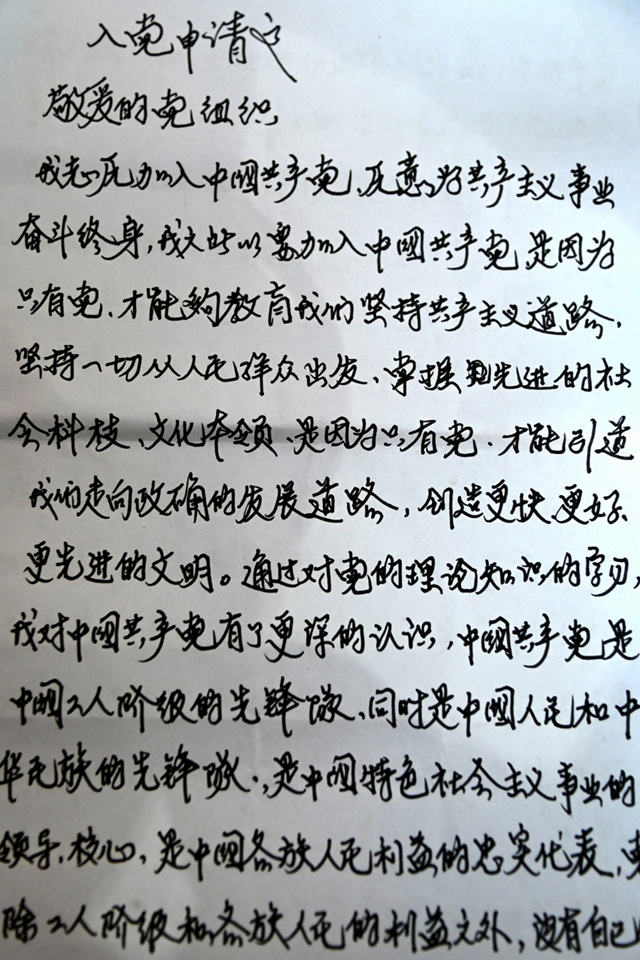 入党申请书
敬爱的党组织
我志愿加入中国共产党、愿意为共产主义事业
奋斗终身,我之所以要加入中国共产党 是因为
只有党、才能够教育我们坚持共产主义道路,
坚持一切从人民群众出发、掌握先进的社
会科技、文化本领、是因为只有党. 才能引道
我们走向政确的发展道路, 创造更快、更好、
更先进的文明。通过对党的理论知识的学习,
我对中国共产党有了更深的认识, 中国共产党是
中国工人阶级的先锋队、同时是中国人民和中
华民族的先锋队., 是中国特色社会主义事业的
领导、核心, 是中国各族人民利益的忠实代表,
除工人阶级和各族人民的利益之外, 没有自己